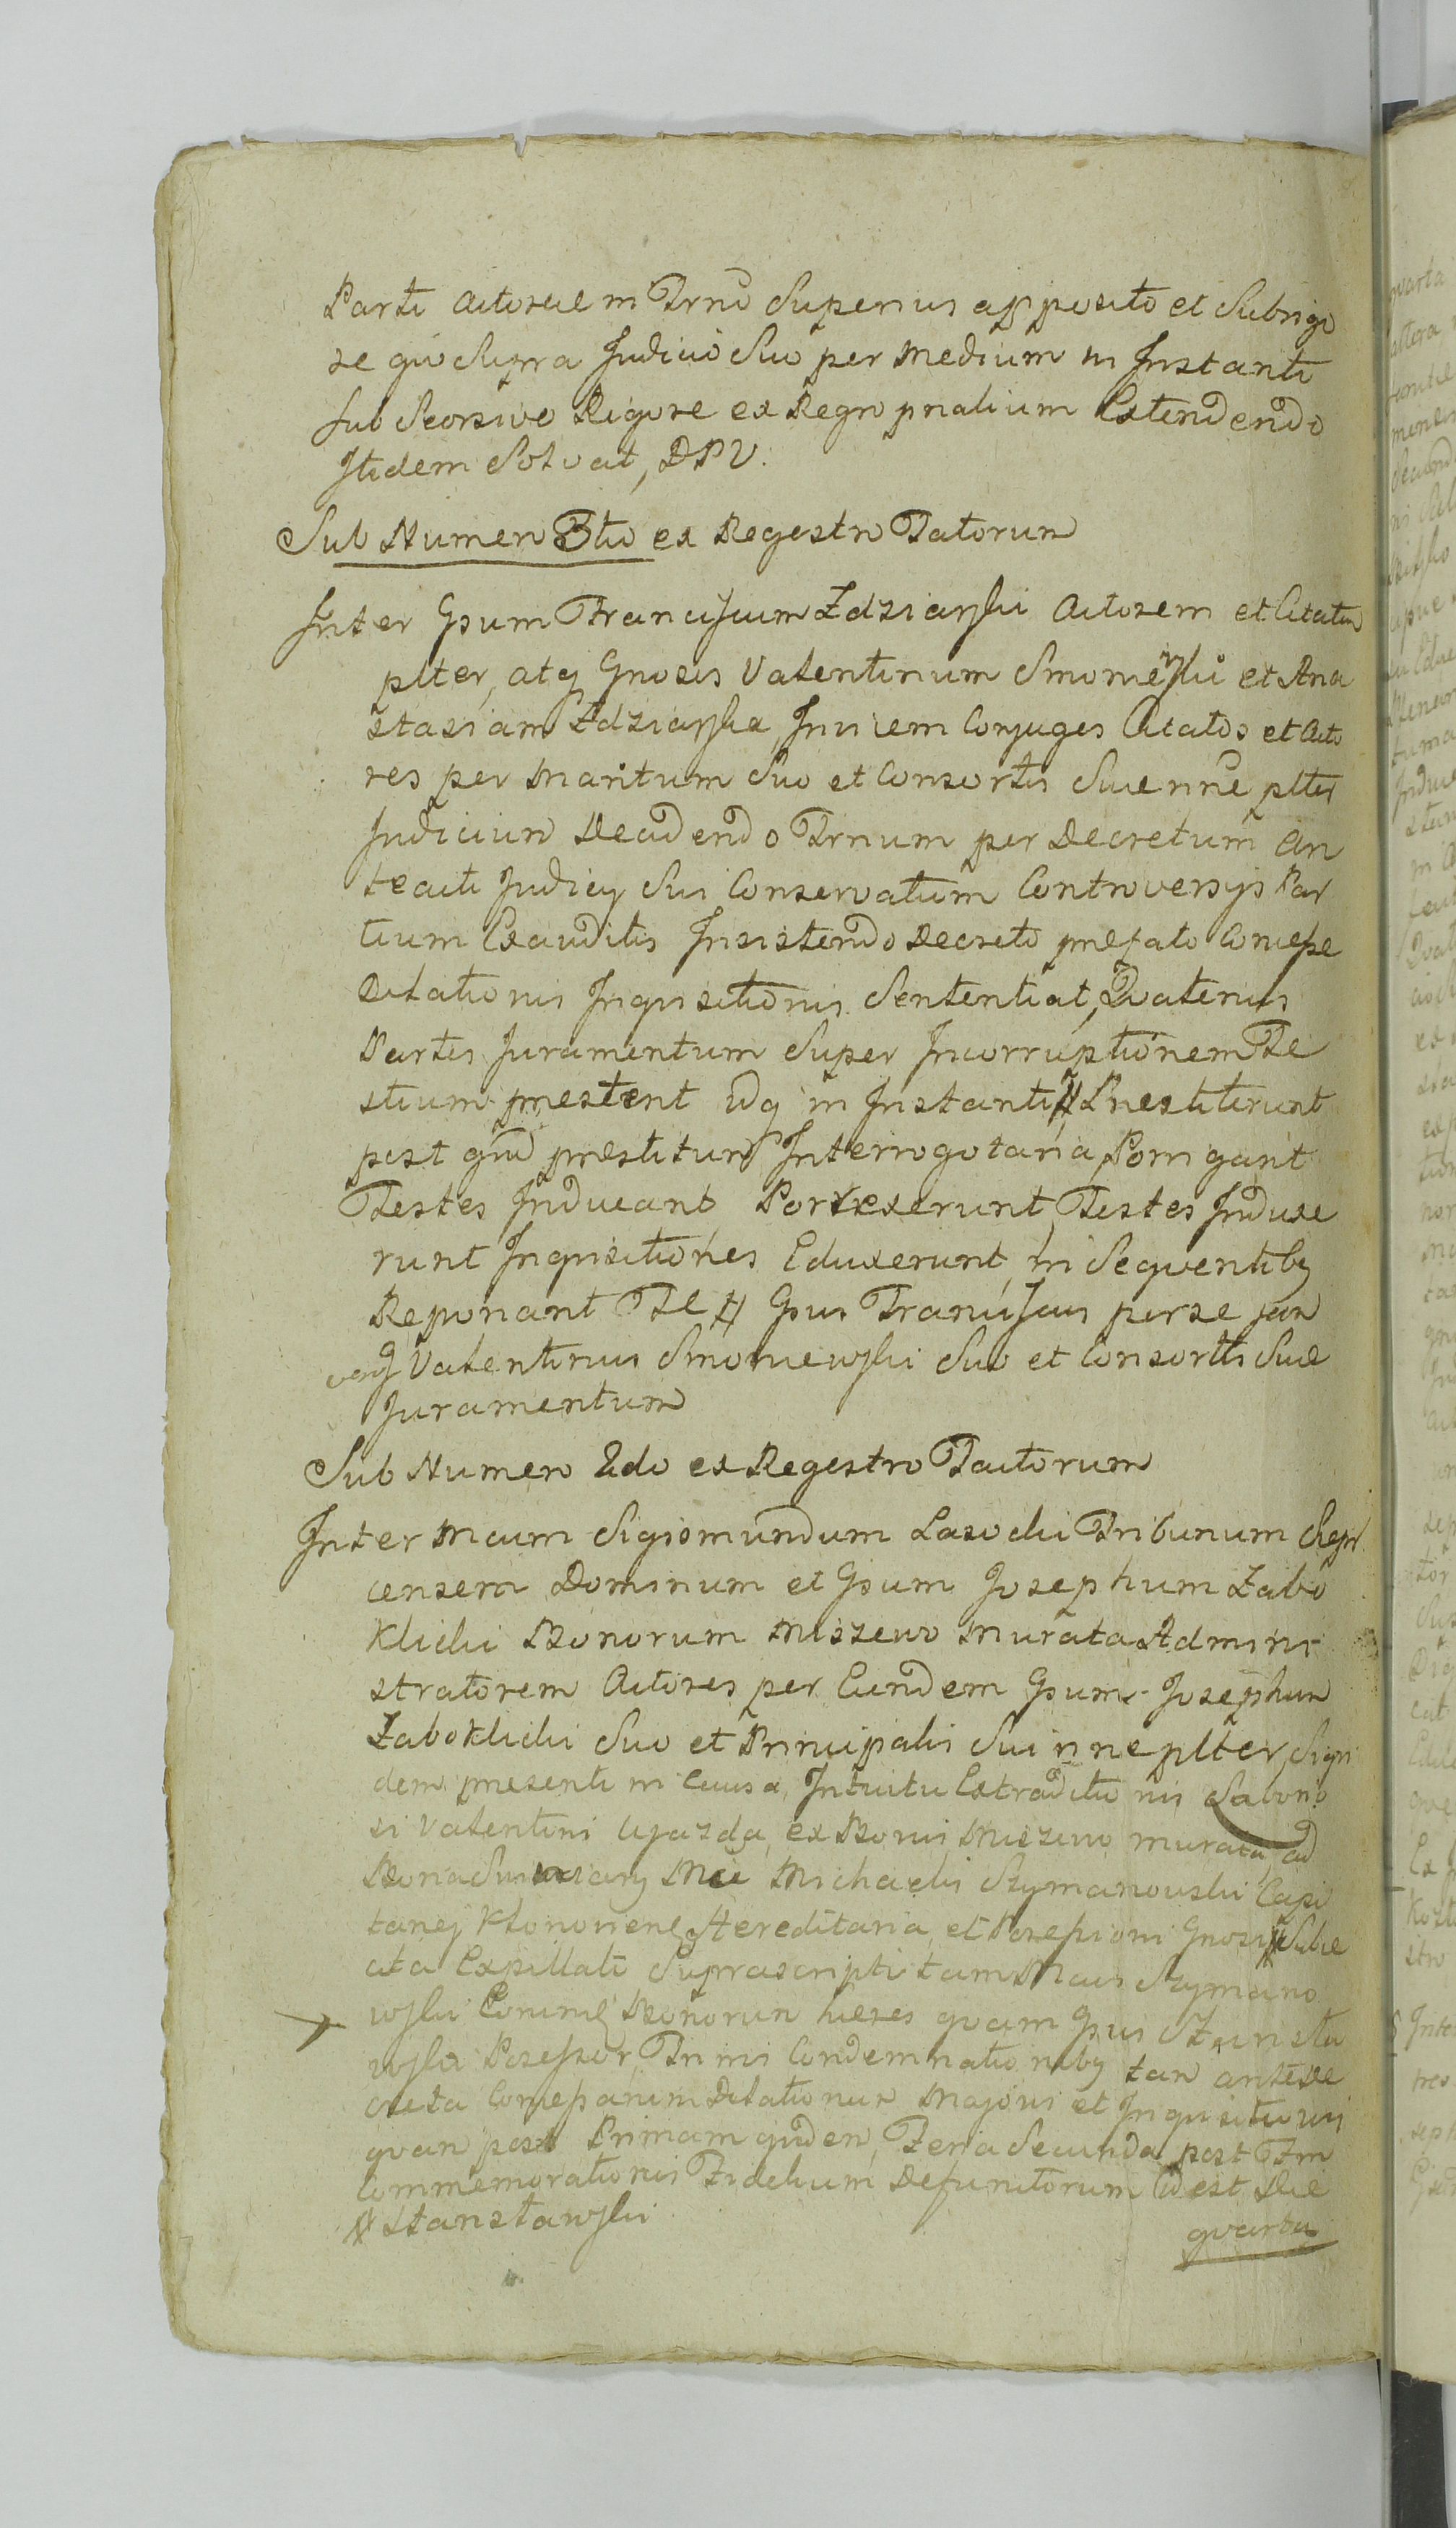 Parti Actoreae in Trno Superius apposito et Subrigo
re quo Supra Judicio Suo per Medium in Instanti
sub Seorsivo Rigore ex Regro pnalium Extendendo
Itidem Solvat, DPV.
Sub Numero 3tio ex Regestro Tatorum
Inter Gsum Franciscum Zdziarski Actorem et Citatum
plter, atq Gnosis Valentinum Smoniewski et Ana
stasiam Zdziarska, Invicem Conjuges Citatos et Acto
res per Maritum Suo et Consortis Suae nne plter
Judicium Decidendo Trnum per Decretum an
teacti Judicy Sui Conservatum Controversys Par
tium Exauditis Insistendo Decreto praefato Concessae
Dilationis Inquisitionis Sententiat, Quatenus
Partes Juramentum Super Incorruptionem Te
stium praestent Idq in Instanti # Praestiterunt
post qud praestitum Interrogotaria Porrigant
Testes Inducant Porrexerunt, Testes Induxe
runt Inquisitiones Eduxerunt, in Sequentibq
Reponant Te # Gsus Franciscus per se jur
Valentinus Smoniewski Suo et Consortis Suae
Juramentum
Sub Numero 2do ex Regestro Tactorum
Inter Mcum Sigismundum Lasocki Tribunum
censem Dominum et Gsum Josephum Zabo
Klicki Bonorum Miszewo Murata Admini
stratorem Actores per Eundem Gsum Josephum
Zaboklicki Suo et Principalis Sui nne plter, Siqui
dem presenti in Causa, Intuitu Extraditionis Laborio
si Valentini Ujazda, ex Bonis Miszewo murata, ad
Bona Mci Michaelis Szymanowski Capi
tanej Hereditaria, et Possessioni Gnosi #
ata Expillati Suprascripti tam Mcus Szymano
wski Bonorum haeres quam Gsus
wski Possessor Trinis Condemnationibq tam antede
creta Concessarum Dilationum Majoris et Inquisitionis
quam post Primam quidem, Feria Secunda post Fm
Commemorationis Fidelium Defunctorum Id est Die
# Stanstawski
quarta